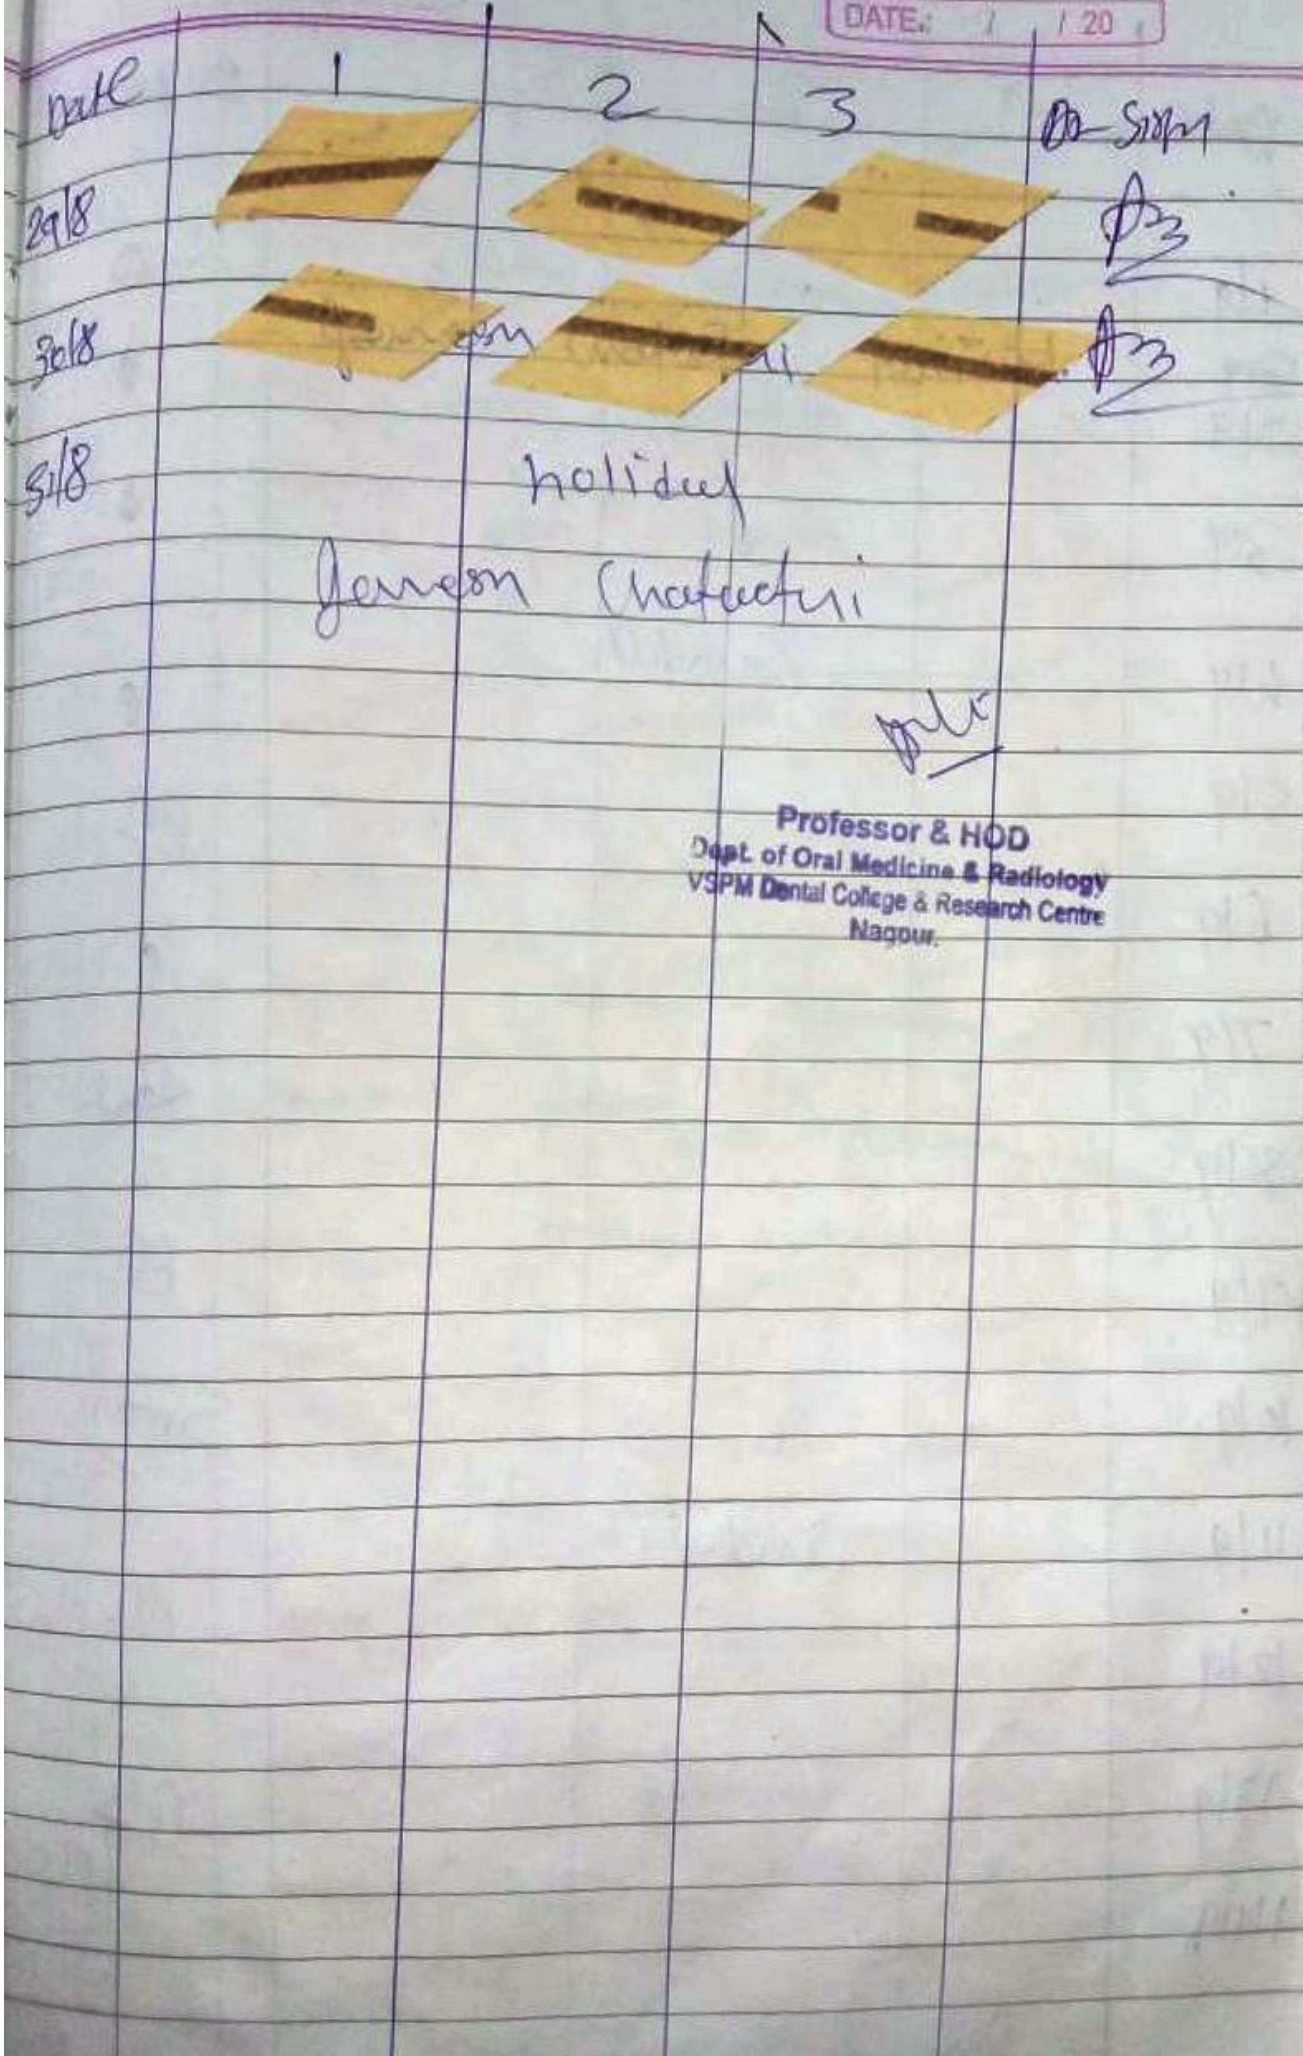 DATE: / / 20
Date 1 2 3
29/8
30/8
31/8 holiday
Ganesh Chataturi
Professor & HOD
Dept. of Oral Medicine & Radiology
VSPM Dental College & Research Centre
Nagpur.